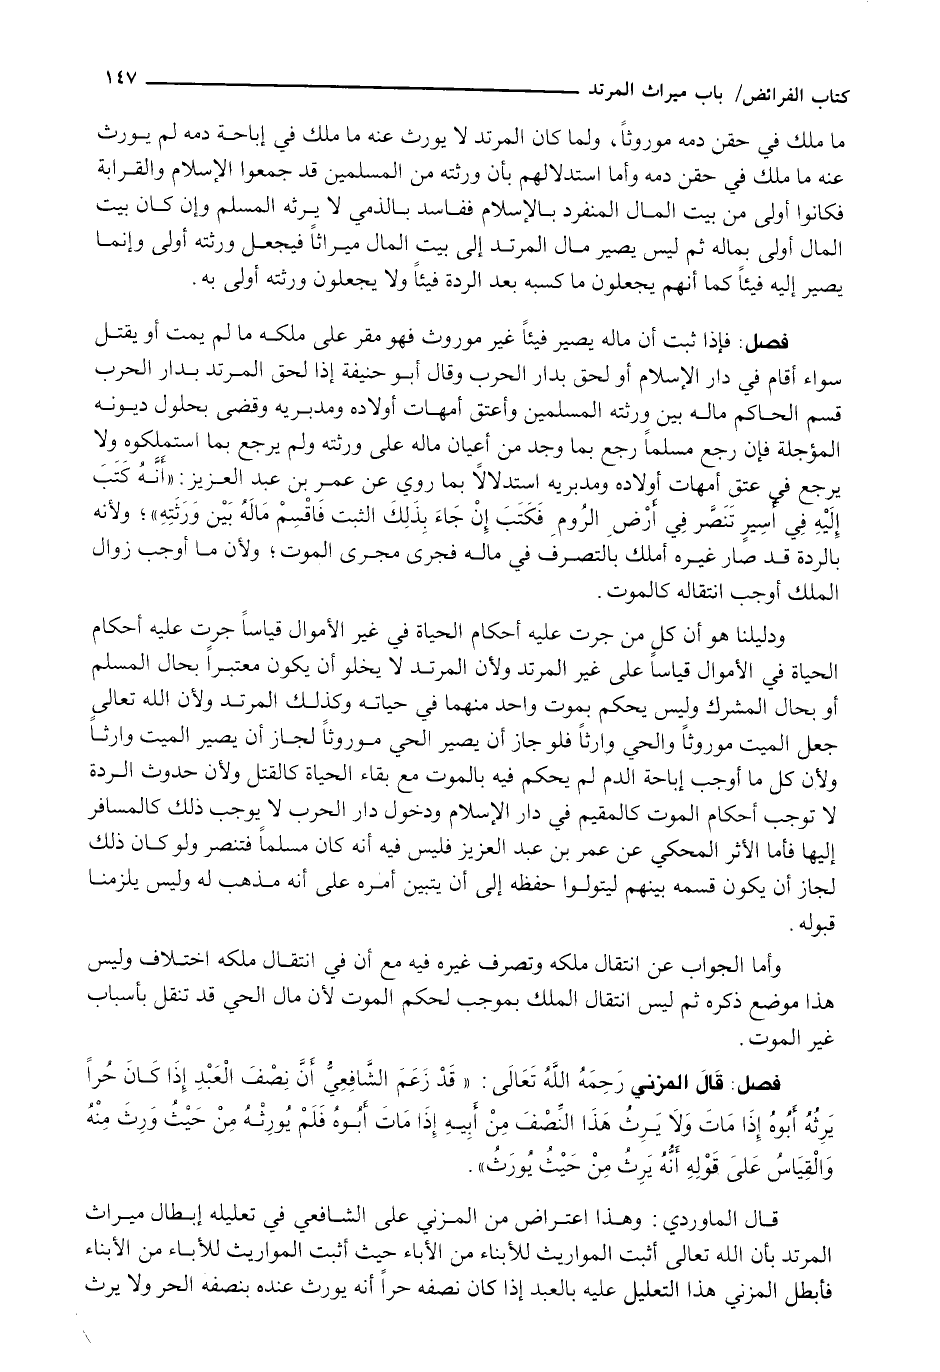 كتاب الفرائض/ باب ميراث المرتد ١٤٧
ما ملك في حقن دمه موروثاً، ولما كان المرتد لا يورث عنه ما ملك في إباحة دمه لم يورث
عنه ما ملك في حقن دمه وأما استدلالهم بأن ورثته من المسلمين قد جمعوا الإسلام والقرابة
فكانوا أولى من بيت المال المنفرد بالإسلام ففاسد بالذمي لا يرثه المسلم وإن كان بيت
المال أولى بماله ثم ليس يصير مال المرتد إلى بيت المال ميراثاً فيجعل ورثته أولى وإنما
يصير إليه فيئاً كما أنهم يجعلون ما كسبه بعد الردة فيئاً ولا يجعلون ورثته أولى به.
فصل: فإذا ثبت أن ماله يصير فيئاً غير موروث فهو مقر على ملكه ما لم يمت أو يقتل
سواء أقام في دار الإسلام أو لحق بدار الحرب وقال أبو حنيفة إذا لحق المرتد بدار الحرب
قسم الحاكم ماله بين ورثته المسلمين وأعتق أمهات أولاده ومدبريه وقضى بحلول ديونه
المؤجلة فإن رجع مسلماً رجع بما وجد من أعيان ماله على ورثته ولم يرجع بما استملكوه ولا
يرجع في عتق أمهات أولاده ومدبريه استدلالاً بما روي عن عمر بن عبد العزيز: «أَنَّهُ كَتَبَ
إِلَيْهِ فِي أَسِيرٍ تَنَصَّر فِي أَرْضِ الرُومِ فَكَتَبَ إِنْ جَاءَ بِذَلِكَ الثبت فَاقْسِمْ مَالَهُ بَيْن وَرَثَتِهِ»؛ ولأنه
بالردة قد صار غيره أملك بالتصرف في ماله فجرى مجرى الموت؛ ولأن ما أوجب زوال
الملك أوجب انتقاله كالموت.
ودليلنا هو أن كل من جرت عليه أحكام الحياة في غير الأموال قياساً جرت عليه أحكام
الحياة في الأموال قياساً على غير المرتد ولأن المرتد لا يخلو أن يكون معتبراً بحال المسلم
أو بحال المشرك وليس يحكم بموت واحد منهما في حياته وكذلك المرتد ولأن الله تعالى
جعل الميت موروثاً والحي وارثاً فلو جاز أن يصير الحي موروثاً لجاز أن يصير الميت وارثاً
ولأن كل ما أوجب إباحة الدم لم يحكم فيه بالموت مع بقاء الحياة كالقتل ولأن حدوث الردة
لا توجب أحكام الموت كالمقيم في دار الإسلام ودخول دار الحرب لا يوجب ذلك كالمسافر
إليها فأما الأثر المحكي عن عمر بن عبد العزيز فليس فيه أنه كان مسلماً فتنصر ولو كان ذلك
لجاز أن يكون قسمه بينهم ليتولوا حفظه إلى أن يتبين أمره على أنه مذهب له وليس يلزمنا
قبوله.
وأما الجواب عن انتقال ملكه وتصرف غيره فيه مع أن في انتقال ملكه اختلاف وليس
هذا موضع ذكره ثم ليس انتقال الملك بموجب لحكم الموت لأن مال الحي قد تنقل بأسباب
غير الموت.
فصل: قَالَ المزني رَحِمَهُ اللَّهُ تَعَالَى: «قَدْ زَعَمَ الشَّافِعِيُّ أَنَّ نِصْفَ الْعَبْدِ إِذَا كَانَ حُراً
يَرِثُهُ أَبُوهُ إِذَا مَاتَ وَلَا يَرِثُ هَذَا النِّصْفَ مِنْ أَبِيهِ إِذَا مَاتَ أَبُوهُ فَلَمْ يُورثْهُ مِنْ حَيْثُ وَرِثَ مِنْهُ
وَالْقِيَاسُ عَلَى قَوْلِهِ أَنَّهُ يَرِثُ مِنْ حَيْثُ يُورَثُ».
قال الماوردي: وهذا اعتراض من المزني على الشافعي في تعليله إبطال ميراث
المرتد بأن الله تعالى أثبت المواريث للأبناء من الأباء حيث أثبت المواريث للأباء من الأبناء
فأبطل المزني هذا التعليل عليه بالعبد إذا كان نصفه حراً أنه يورث عنده بنصفه الحر ولا يرث